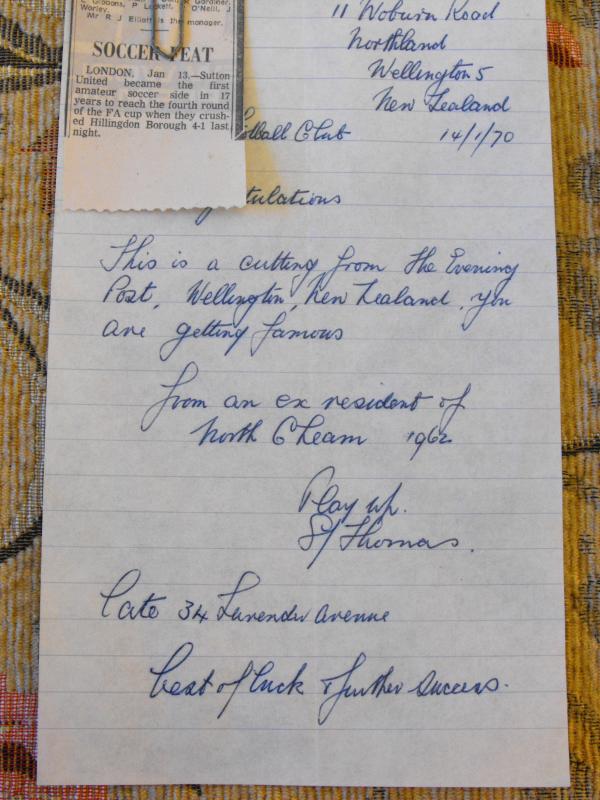 C Gibbons, P Lockett, Gardiner,
Worley. O'Neill, J
Mr R J Elliott is the manager.
SOCCER FEAT
LONDON, Jan 13.—Sutton
United became the first
amateur soccer side in 17
years to reach the fourth round
of the FA cup when they crush-
ed Hillingdon Borough 4-1 last
night.
11 Woburn Road
Northland
Wellington 5
New Zealand
14/1/70
tball Club
tulations
This is a cutting from the Evening
Post, Wellington, New Zealand, you
are getting famous
from an ex resident of
North Cheam 1962
Play up.
S/ Thomas.
Late 34 Lavender Avenue
best of luck & further success.